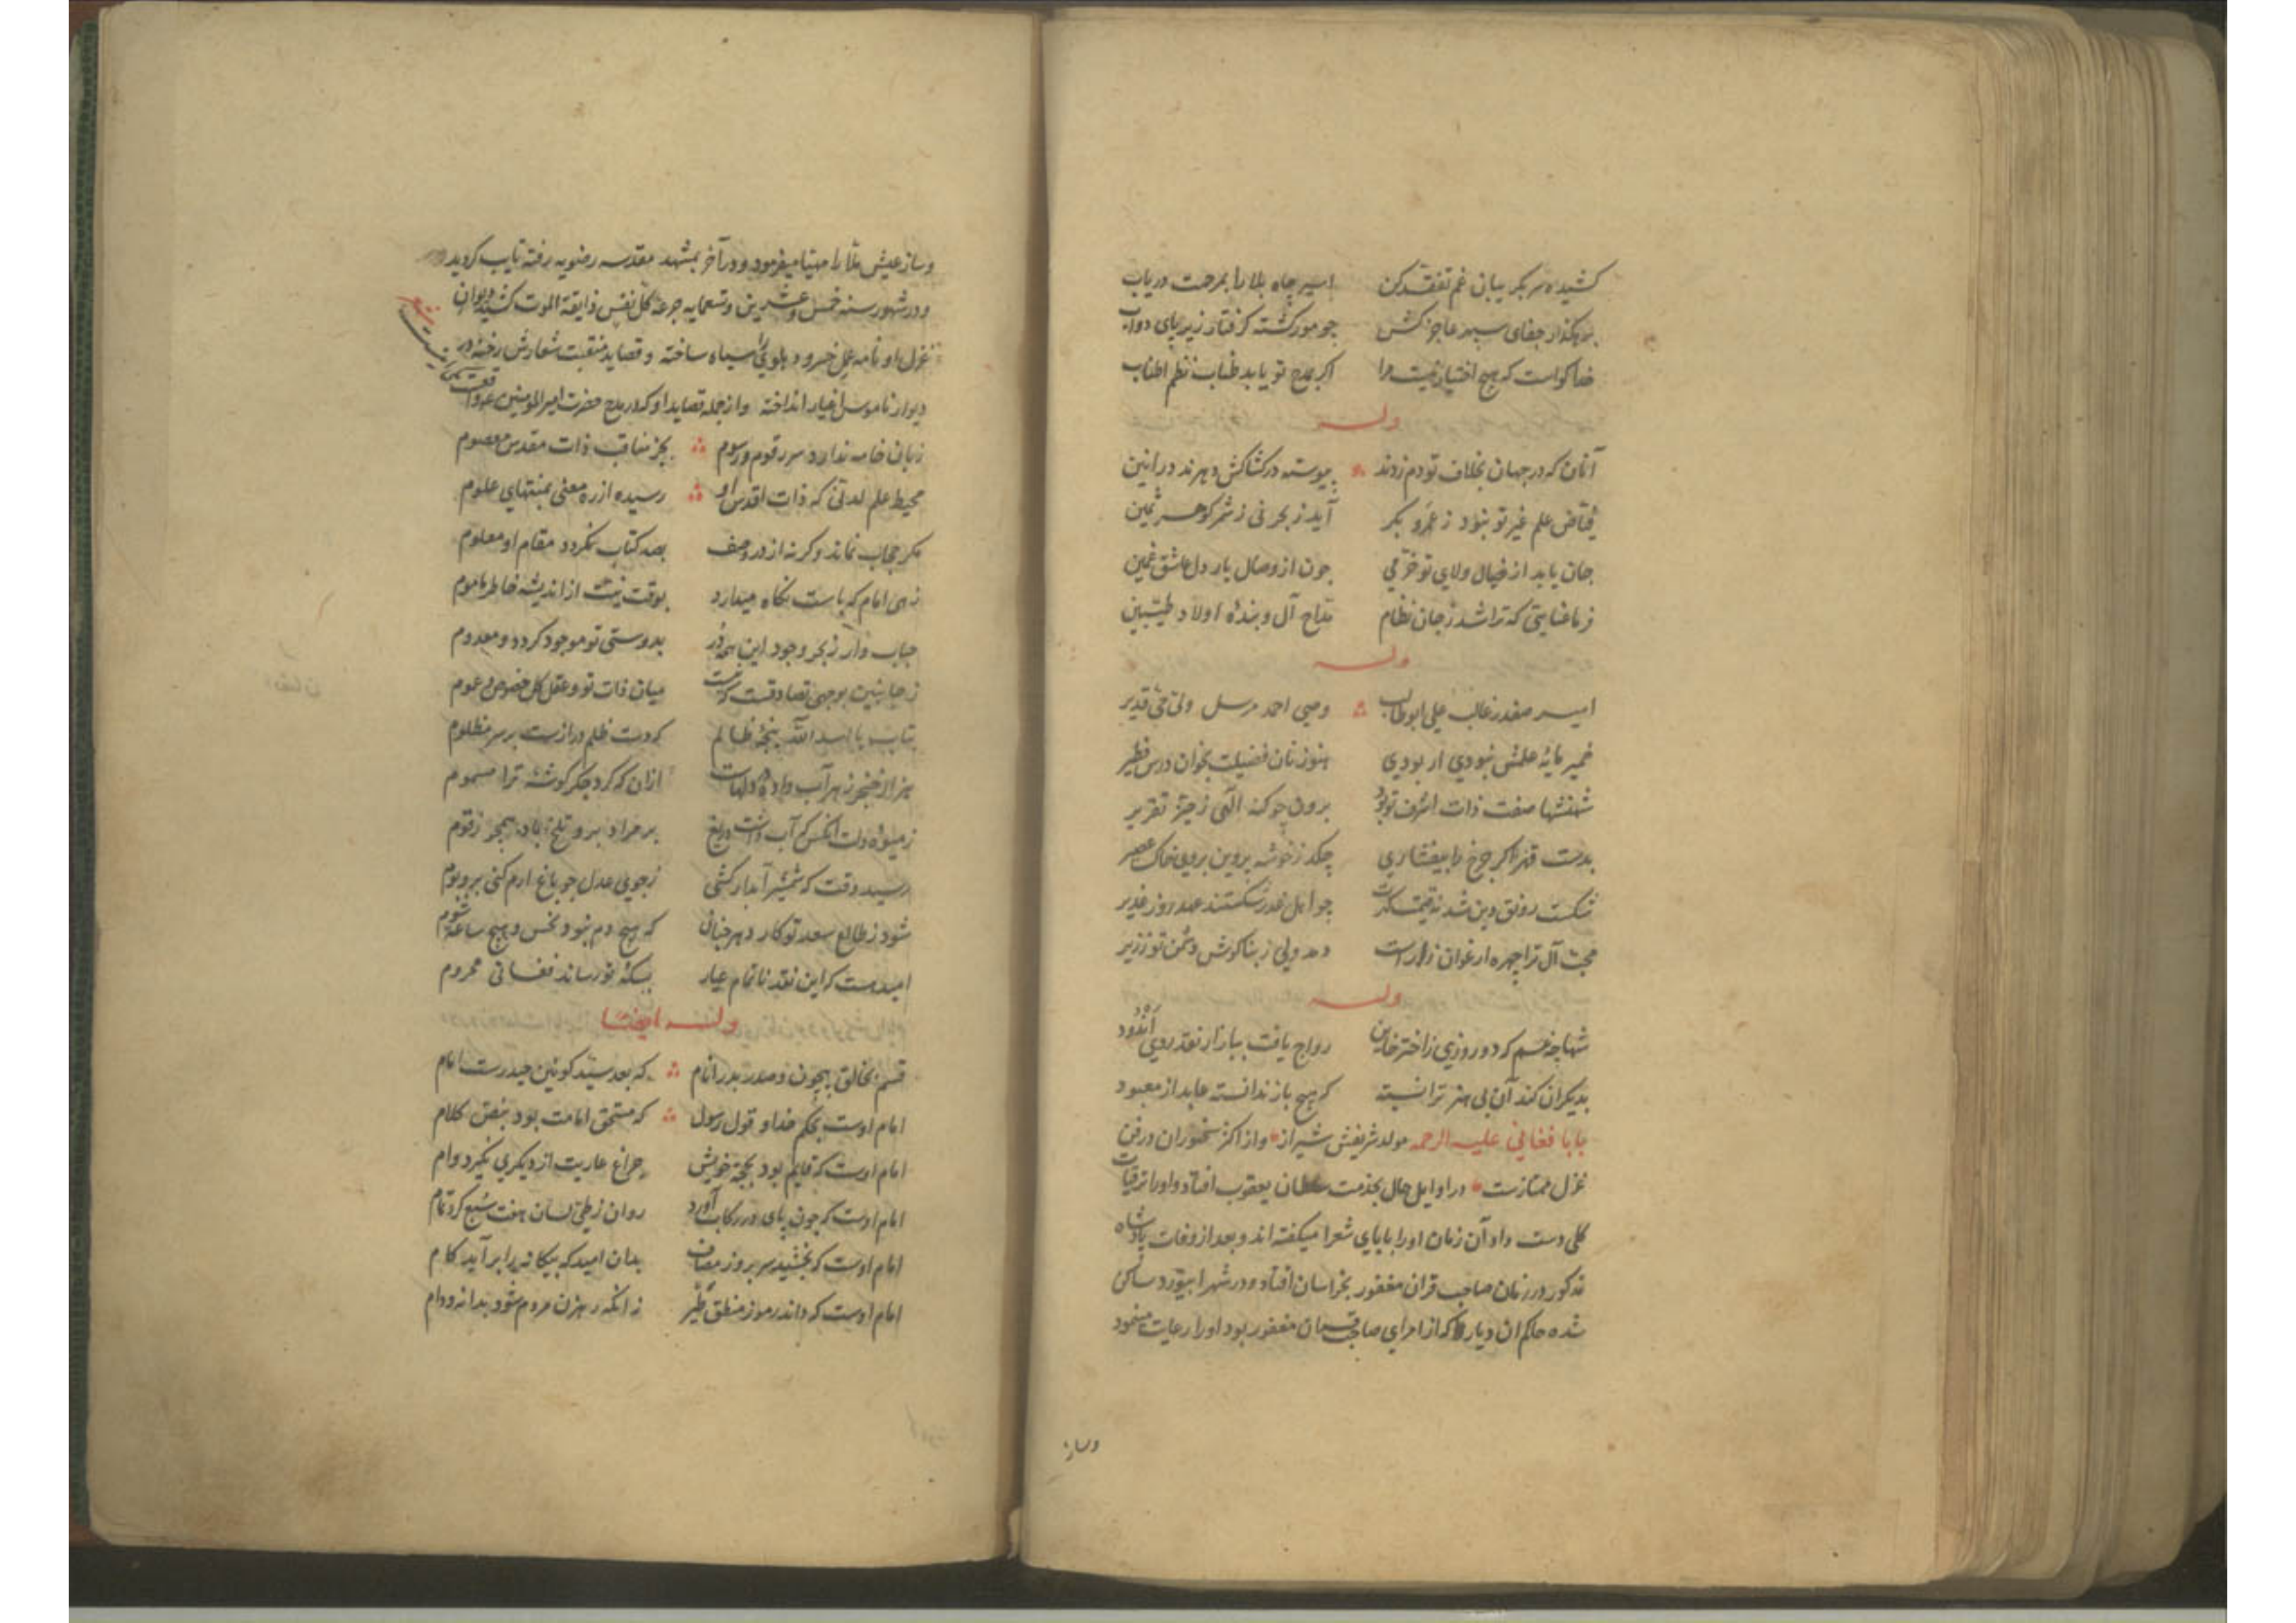 کشیده سر بگریبانی غم تفقد کن اسیر چاه بلا را بمرحمت دریاب
برهگذار جفای سپهر عاجز کش چو مور گشته گرفتار زیر پای دواب
خدا گواست که هیچ اختیار نیست مرا اگر بمدح تو یابد طناب نظم اطناب
وله
آنان که در جهان بخلاف تو دم زدند پیوسته در کشاکش دهرند در انین
فیاض علم غیر تو نبود ز عمرو بکر آید ز بحر نی ز شمر گوهر ثمین
جان یابد از خیال ولای تو خرمی چون از وصال یار دل عاشق غمین
فرما عنایتی که تراشد ز جان نظام مداح آل و بندهٔ اولاد طیبین
وله
امیر صفدر غالب علی ابوطالب وصی احمد مرسل ولی حی قدیر
خمیر مایهٔ علمش نبودی ار بودی هنوز نان فضیلت بخوان درس فطیر
شهنشها صفت ذات اشرف تو بود برون چو کنه الهی ز حیز تقریر
بدست قهر اگر چرخ را بیفشاری چکد ز خوشه پروین بروی خاک عصیر
شکست رونق دین شد نه قیمتت که چو اهل غدر شکستند عهد روز غدیر
محب آل ترا چهره ارغوان زارست دمد ولی ز بناگوش دشمن تو زریر
وله
شها چه غم که دو روزی ز اختر خاین رواج یافت ببازار نقد روی اندود
بدیگران کند آن بی هنر ترا نسبت که هیچ باز ندانسته عابد از معبود
بابا فغانی علیه الرحمه مولد شریفش شیراز و از اکثر سخنوران در فن
غزل ممتازست در اوایل حال بخدمت سلطان یعقوب افتاد و او را ترقیات
کلی دست داد آن زمان او را بابای شعرا میگفته اند و بعد از وفات پادشاه
مذکور در زمان صاحب قران مغفور بخراسان افتاد و در شهر ابیورد ساکن
شده حاکم ان دیار که از امرای صاحب قران مغفور بود او را رعایت مینمود
وساز
وساز عیش بلا را مهیا میفرمود و در آخر بمشهد مقدسه رضویه رفته تایب گردید
و در شهور سنه خمس و عشرین و تسعمایه جرعه کل نفس ذایقة الموت کشید دیوان
غزل او نامه عمل خسرو دهلوی را سیاه ساخته و قصاید منقبت شعارش رخنه در
دیوار ناموس اغیار انداخته و از جمله قصاید او که در مدح حضرت امیر المومنین واقعست این
زبان خامه ندارد سر رقوم و رسوم بجز مناقب ذات مقدس معصوم
محیط علم لدنی که ذات اقدس او رسیده از ره معنی بمنتهای علوم
مگر حجاب نماند وگرنه از در وصف بصد کتاب نگردد مقام او معلوم
زهی امام که پاست نگاه میدارد بوقت نیت از اندیشه خاطر ماموم
حباب وار ز بحر وجود این همه در بدوستی تو موجود گردد و معدوم
ز جانبین بوجهی تصادقست که نیست میان ذات تو و عقل کل خصوص و عموم
بتاب یا اسد الله پنجهٔ ظالم که دست ظلم درازست بر سر مظلوم
هزار خنجر زهر آب داده در دلهاست ازان که کرد جگر گوشهٔ ترا مسموم
ز میوهٔ دلت آنکس که آب داشت دریغ بر مراد برو تلخ باد همچو زقوم
رسید وقت که شمشیر آبدار کشی ز جوی عدل چو باغ ارم کنی بر و بوم
شود ز طالع سعد تو کار دهر چنان که هیچ دم نبود نحس و هیچ ساعه شوم
امید هست که این نقد ناتمام عیار بسکهٔ تو رساند فغانی محروم
وله ایضا
قسم بخالق بیچون و صدر بدر انام که بعد سید کونین حیدرست امام
امام اوست بحکم خدا و قول رسول که مستحق امامت بود بنص کلام
امام اوست که قایم بود بحجة خویش چراغ عاریت از دیگری نگیرد وام
امام اوست که چون پای در رکاب آورد روان ز طی لسان هفت سبع کرد تمام
امام اوست که بخشید سر بروز مصاف بدان امید که بیگانه را برآید کام
امام اوست که داند رموز منطق طیر نه آنکه رهزن مردم شود بدانه و دام